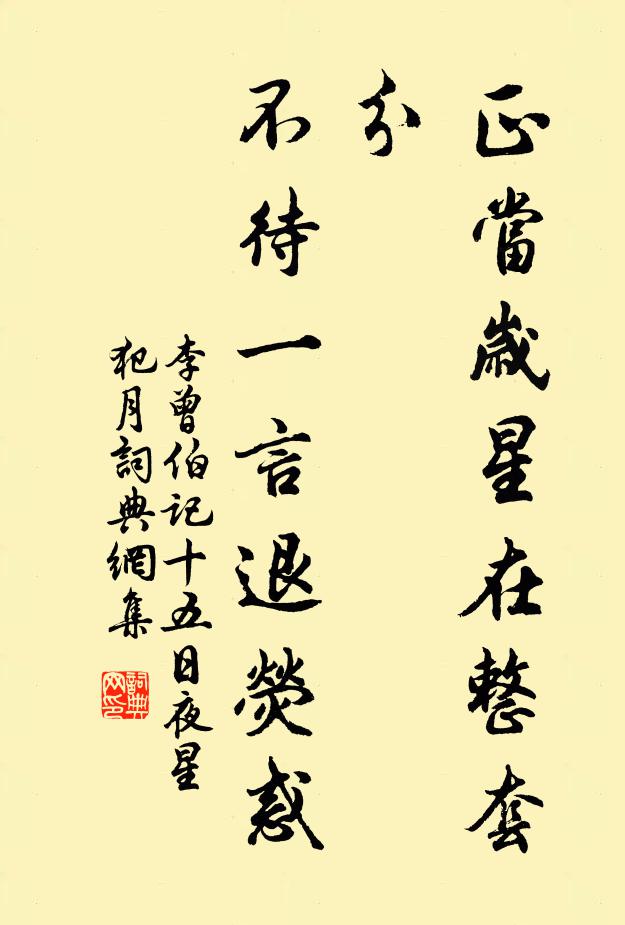 正當歲星在整套
分
不待一言退熒惑
李曾伯記十五日夜星
犯月詞典網集
詞典網印